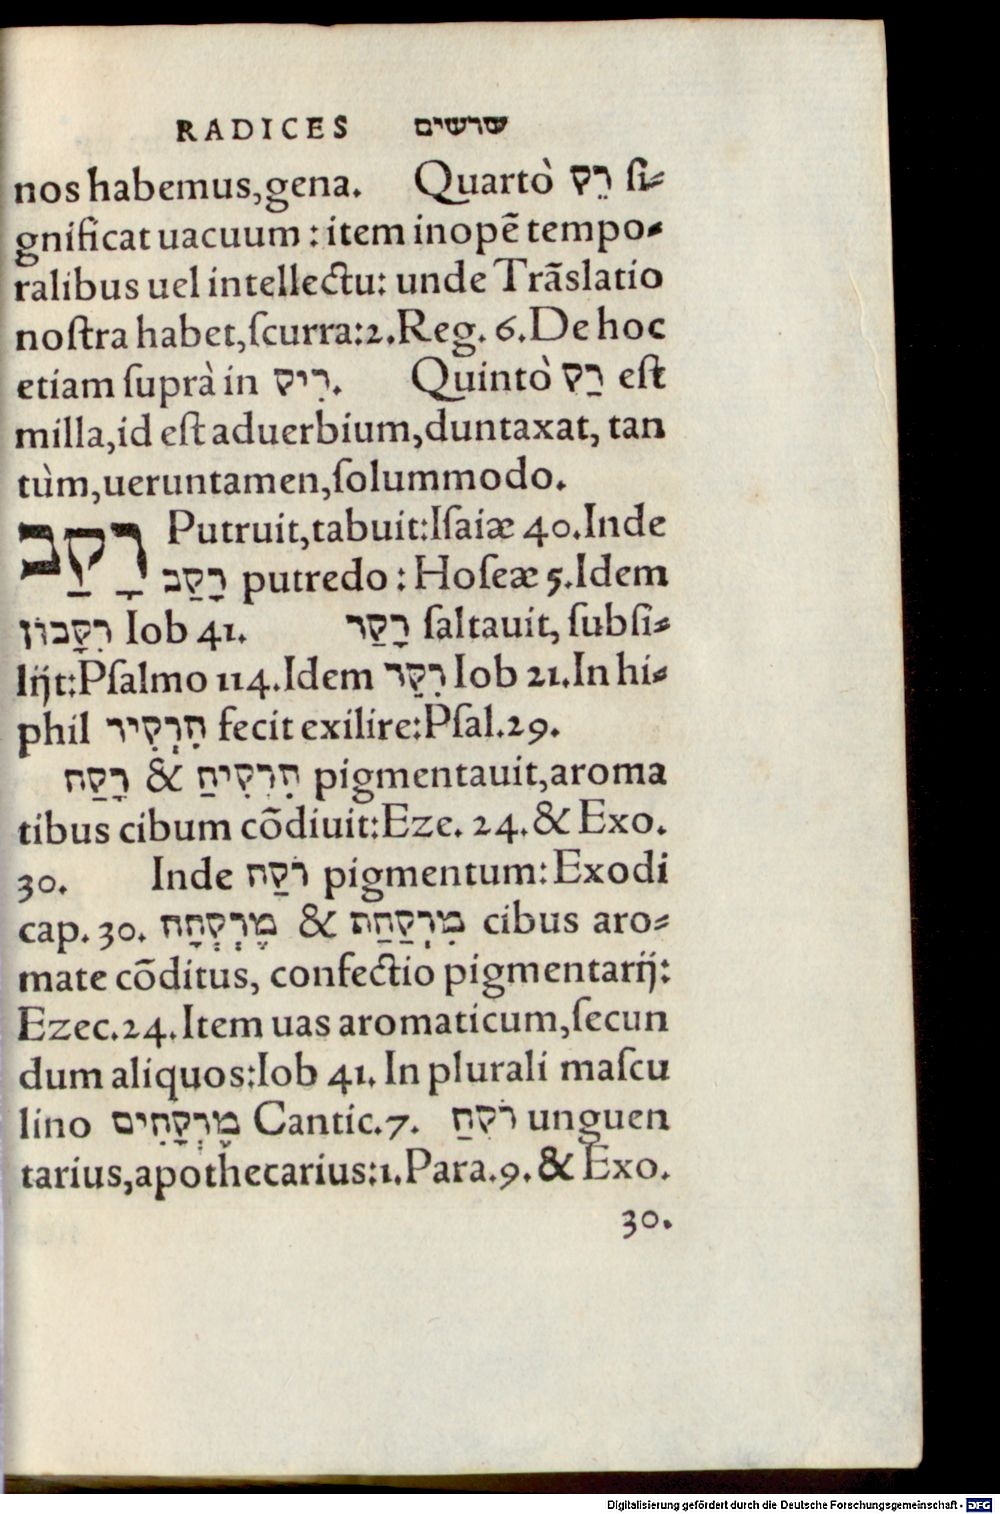 RADICES שרשים
nos habemus,gena. Quartò רֵק ſi⸗
gnificat uacuum : item inopẽ tempo⸗
ralibus uel intellectu: unde Trãslatio
noſtra habet,ſcurra:2.Reg. 6.De hoc
etiam ſuprà in רִיק. Quintò רַק eſt
milla,id eſt aduerbium,duntaxat, tan
tùm,ueruntamen,ſolummodo.
רָקַב Putruit,tabuit:Iſaiæ 40.Inde
רָקַב putredo : Hoſeæ 5.Idem
רִקָּבוֹן Iob 41. רָקַד ſaltauit, ſubſi⸗
lijt:Pſalmo 114.Idem רִקֵּד Iob 21.In hi⸗
phil הִרְקִיד fecit exilire:Pſal.29.
רָקַח & הִרְקִיחַ pigmentauit,aroma
tibus cibum cõdiuit:Eze. 24.& Exo.
30. Inde רֹקַח pigmentum:Exodi
cap. 30. מֶרְקָחָה & מִרְקַחַת cibus aro⸗
mate cõditus, confectio pigmentarij:
Ezec.24.Item uas aromaticum,ſecun
dum aliquos:Iob 41. In plurali maſcu
lino מֶרְקָחִים Cantic.7. רֹקֵחַ unguen
tarius,apothecarius:1.Para.9.& Exo.
30.
Digitalisierung gefördert durch die Deutsche Forschungsgemeinschaft - DFG